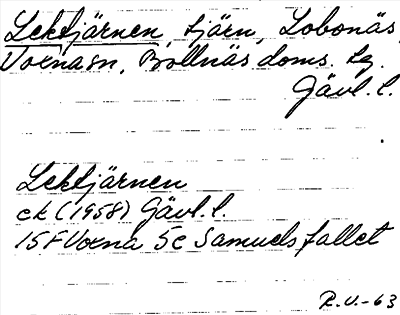 Lektjärnen, tjärn, Lobonäs,
Voxna sn, Bollnäs doms. tg.
Gävl. l.
Lektjärnen
ek (1958) Gävl. l.
15 F Voxna 5c Samuelsfallet
R.U.-63